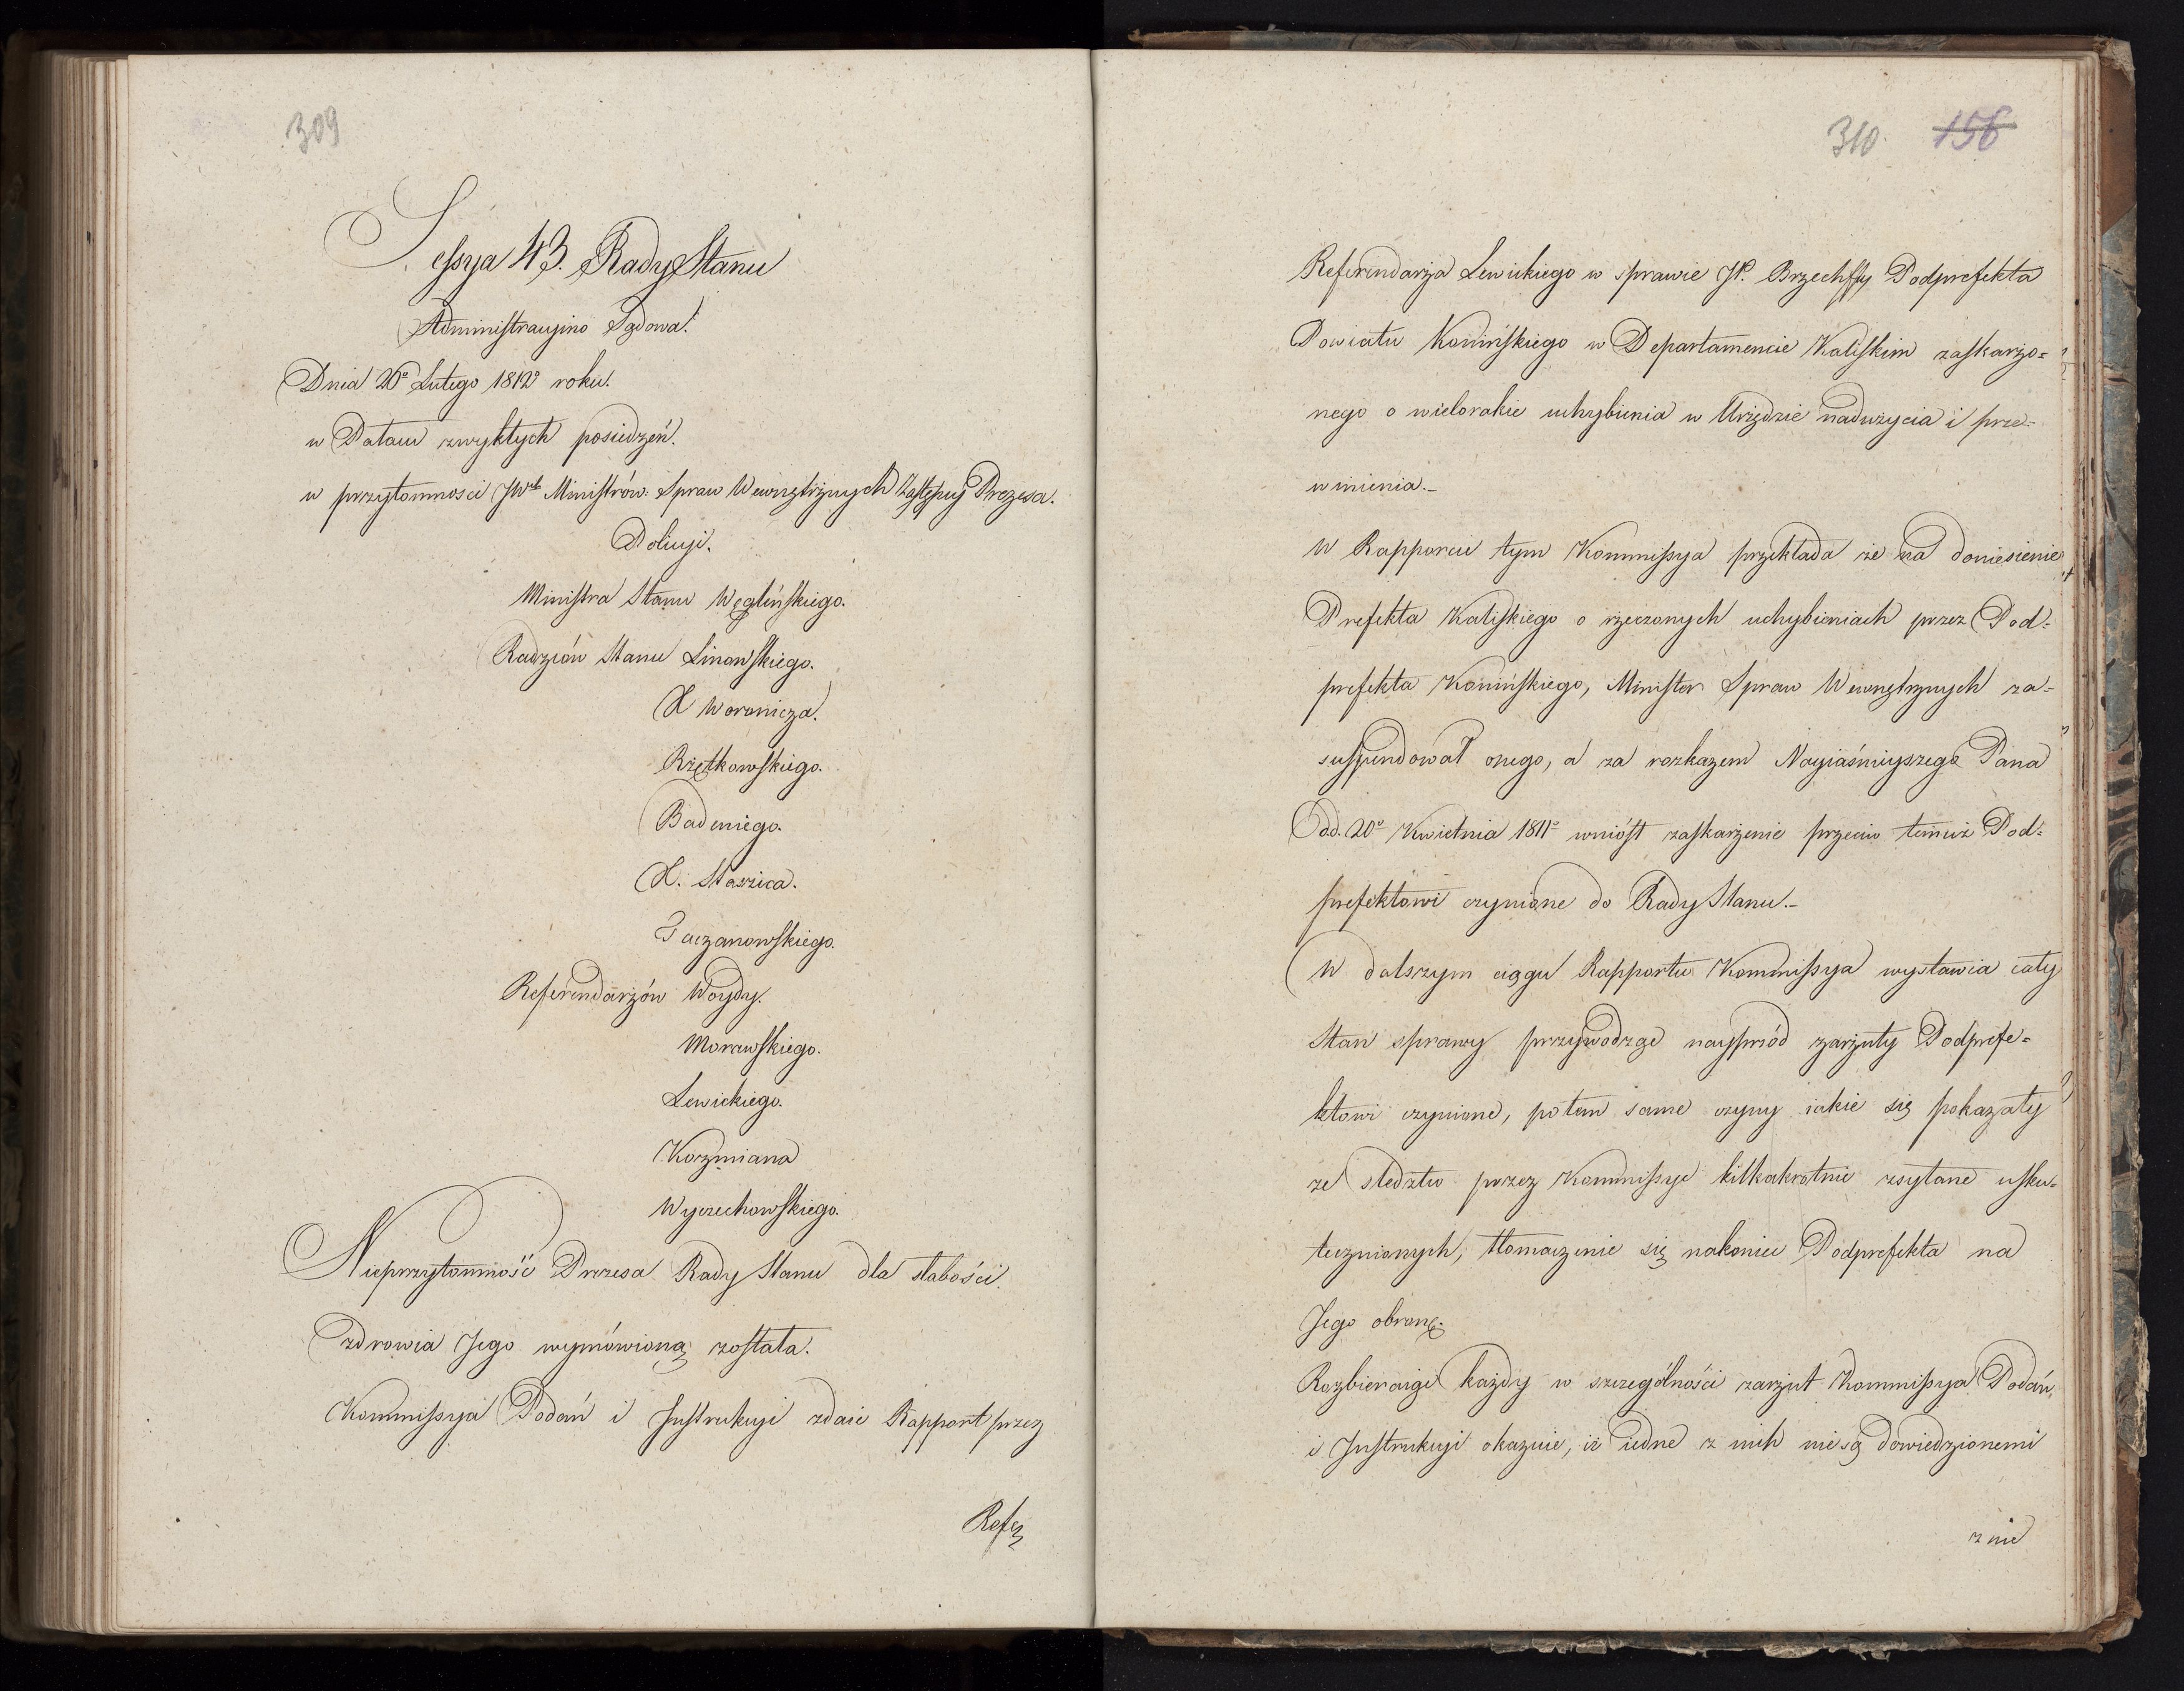 309
Sessya 43. Rady Stanu
Administracyino Sądowa.
Dnia 26º Lutego 1812º roku.
w Pałacu zwykłych posiedzeń.
w przytomności JWch Ministrów: Spraw Wewnętrznych Zastępcy Prezesa.
Policyi.
Ministra Stanu Węgleńskiego.
Radzców Stanu Linowskiego.
X Woronicza.
Rzętkowskiego.
Badeniego.
X. Staszica.
Taczanowskiego.
Referendarzów Woydy.
Morawskiego.
Lewickiego.
Kozmiana
Wyczechowskiego.
Nieprzytomność Prezesa Rady Stanu dla słabości
zdrowia Jego wymówioną została.
Kommissya Podań i Instrukcyi zdaie Rapport przez
Refe
310. 156
Referendarza Lewickiego w sprawie JP. Brzechffy Podprefekta
Powiatu Konińskiego w Departamencie Kaliskim zaskarżo=
nego o wielorakie uchybienia w Urzędzie nadużycia i prze=
winienia.-
W Rapporcie tym Kommissya przekłada że na doniesienie
Prefekta Kaliskiego o rzeczonych uchybieniach przez Pod=
prefekta Konińskiego, Minister Spraw Wewnętrznych za=
suspendował onego, a za rozkazem Nayiaśnieyszego Pana
Dd. 20º Kwietnia 1811º wniósł zaskarżenie przeciw temuż Pod=
prefektowi czynione do Rady Stanu.-
W dalszym ciągu Rapportu Kommissya wystawia cały
Stan sprawy przywodząc nayprzód zarzuty Podprefe=
ktowi czynione, potem same czyny iakie się pokazały
ze śledztw przez Kommissye kilkakrotnie zsyłane usku=
tecznionych, tłomaczenie się nakoniec Podprefekta na
Jego obronę.
Rozbieraiąc każdy w szczególności zarzut Kommissya Podań
i Instrukcyi okazuie, iż iedne z nich nie są dowiedzionemi
z nie